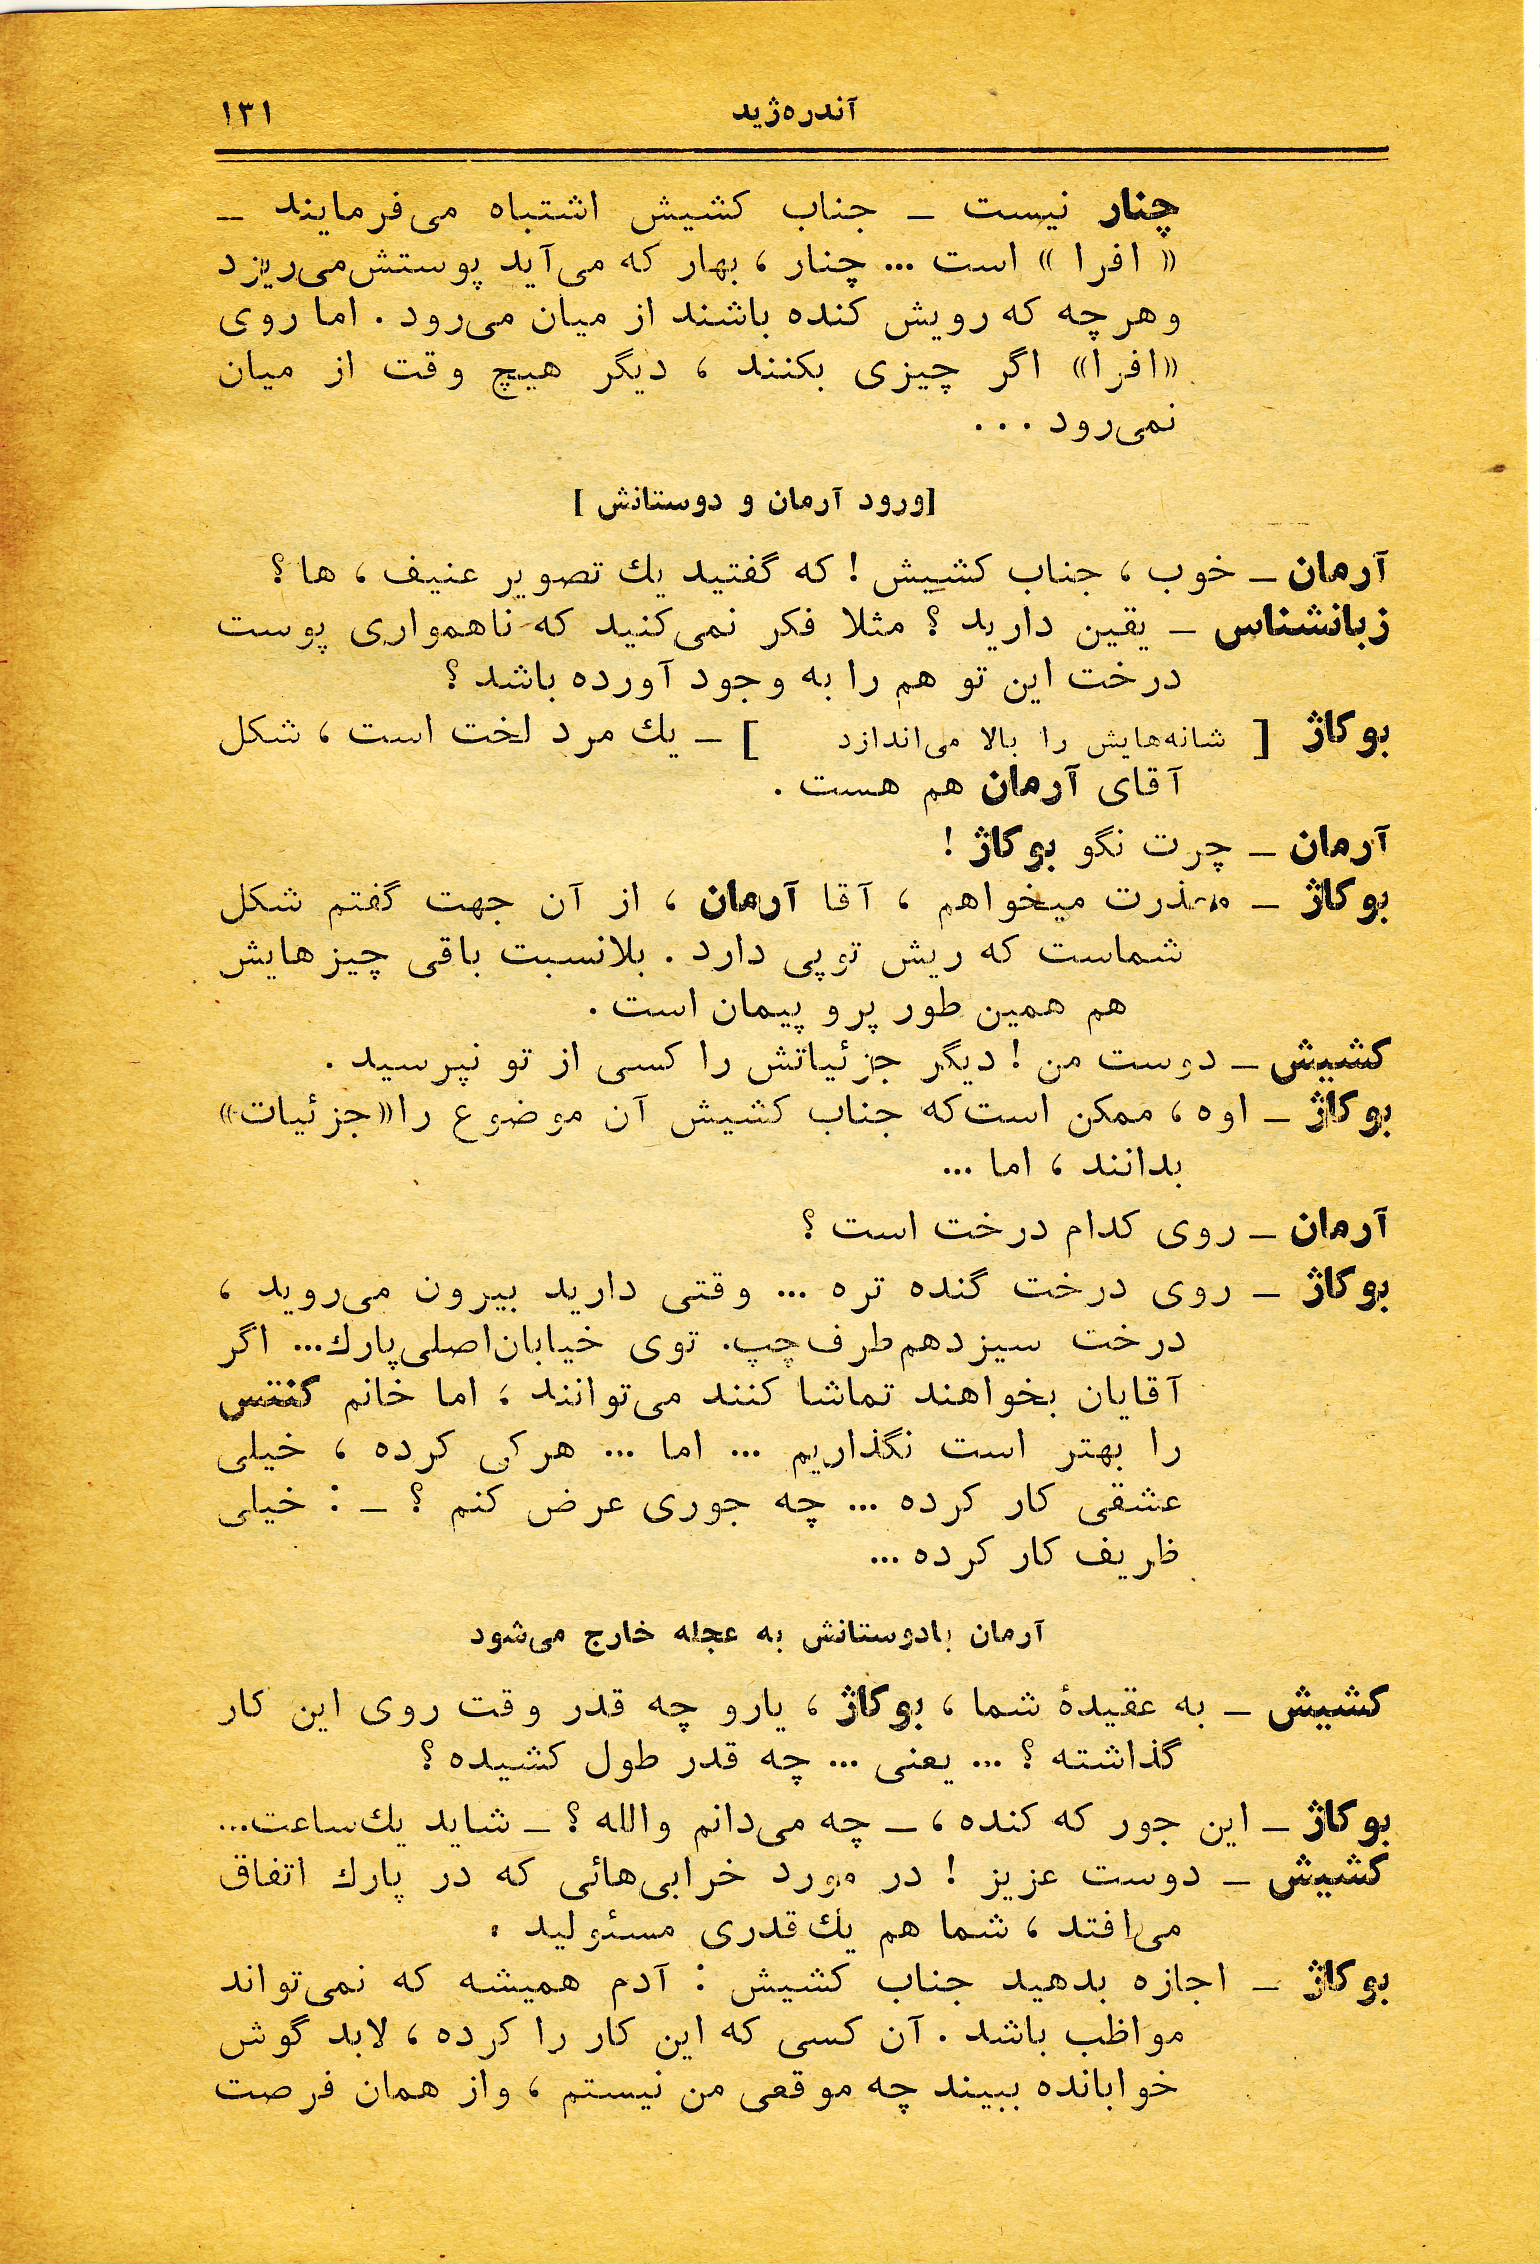 آندره‌ژید ۱۳۱
چنار نیست ـ جناب کشیش اشتباه می‌فرمایند ـ
« افرا » است ... چنار ، بهار که می‌آید پوستش‌می‌ریزد
و هرچه که رویش کنده باشند از میان می‌رود . اما روی
«افرا» اگر چیزی بکنند ، دیگر هیچ وقت از میان
نمی‌رود ...
[ورود آرمان و دوستانش ]
آرمان ـ خوب ، جناب کشیش ! که گفتید یك تصویر عنیف ، ها ؟
زبانشناس ـ یقین دارید ؟ مثلا فکر نمی‌کنید که ناهمواری پوست
درخت این تو هم را به وجود آورده باشد ؟
بوکاژ [ شانه‌هایش را بالا می‌اندازد ] ـ یك مرد لخت است ، شکل
آقای آرمان هم هست .
آرمان ـ چرت نگو بوکاژ !
بوکاژ ـ معذرت میخواهم ، آقا آرمان ، از آن جهت گفتم شکل
شماست که ریش توپی دارد . بلانسبت باقی چیزهایش
هم همین طور پرو پیمان است .
کشیش ـ دوست من ! دیگر جزئیاتش را کسی از تو نپرسید .
بوکاژ ـ اوه ، ممکن است‌که جناب کشیش آن موضوع را«جزئیات»
بدانند ، اما ...
آرمان ـ روی کدام درخت است ؟
بوکاژ ـ روی درخت گنده تره ... وقتی دارید بیرون می‌روید ،
درخت سیزدهم‌طرف‌چپ. توی خیابان‌اصلی‌پارك... اگر
آقایان بخواهند تماشا کنند می‌توانند ؛ اما خانم کنتس
را بهتر است نگذاریم ... اما ... هرکی کرده ، خیلی
عشقی کار کرده ... چه جوری عرض کنم ؟ ـ : خیلی
ظریف کار کرده ...
آرمان بادوستانش به عجله خارج می‌شود
کشیش ـ به عقیدهٔ شما ، بوکاژ ، یارو چه قدر وقت روی این کار
گذاشته ؟ ... یعنی ... چه قدر طول کشیده ؟
بوکاژ ـ این جور که کنده ، ـ چه می‌دانم والله ؟ ـ شاید یك‌ساعت...
کشیش ـ دوست عزیز ! در مورد خرابی‌هائی که در پارك اتفاق
می‌افتد ، شما هم یك‌قدری مسئولید .
بوکاژ ـ اجازه بدهید جناب کشیش : آدم همیشه که نمی‌تواند
مواظب باشد . آن کسی که این کار را کرده ، لابد گوش
خوابانده ببیند چه موقعی من نیستم ، واز همان فرصت